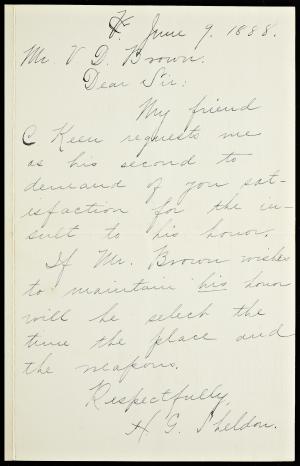 June 9. 1888.
Mr. V. D. Brown.
Dear Sir:
My friend
C Keen requests me
as his second to
demand of you sat-
isfaction for the in-
sult to his honor.
If Mr. Brown wishes
to maintain his honor
will he select the
time the place and
the weapons.
Respectfully,
H. G. Sheldon.